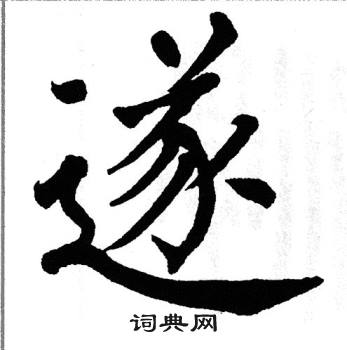 遂
词典网